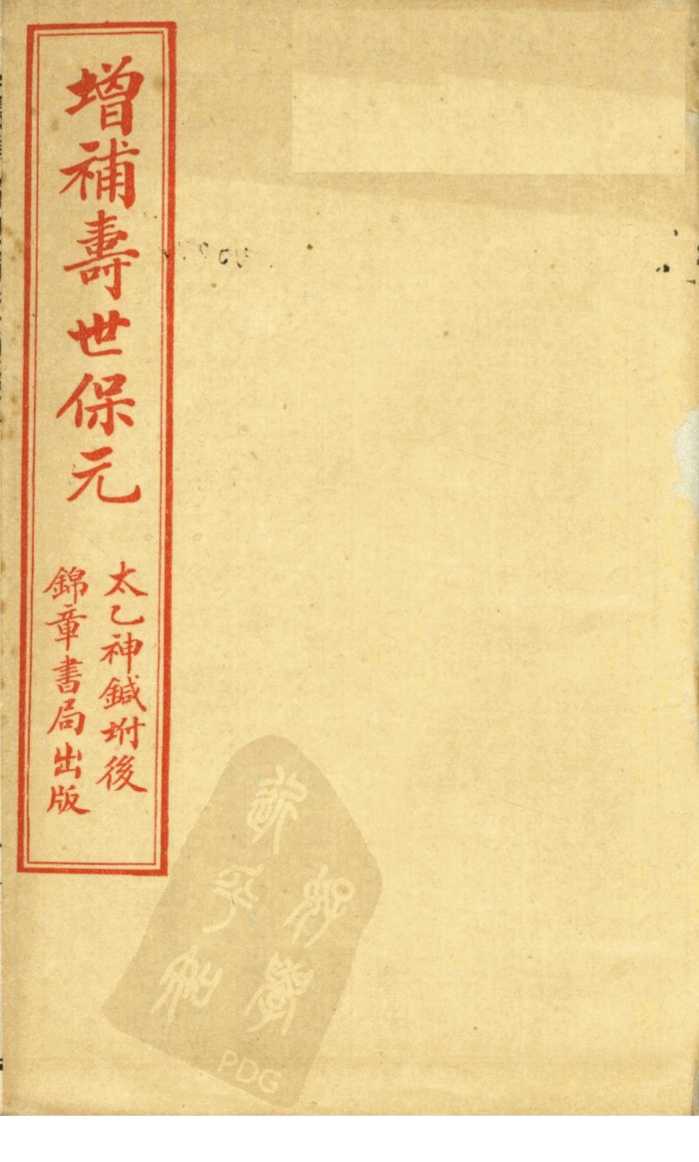 增補壽世保元
太乙神鍼坿後
錦章書局出版
PDG